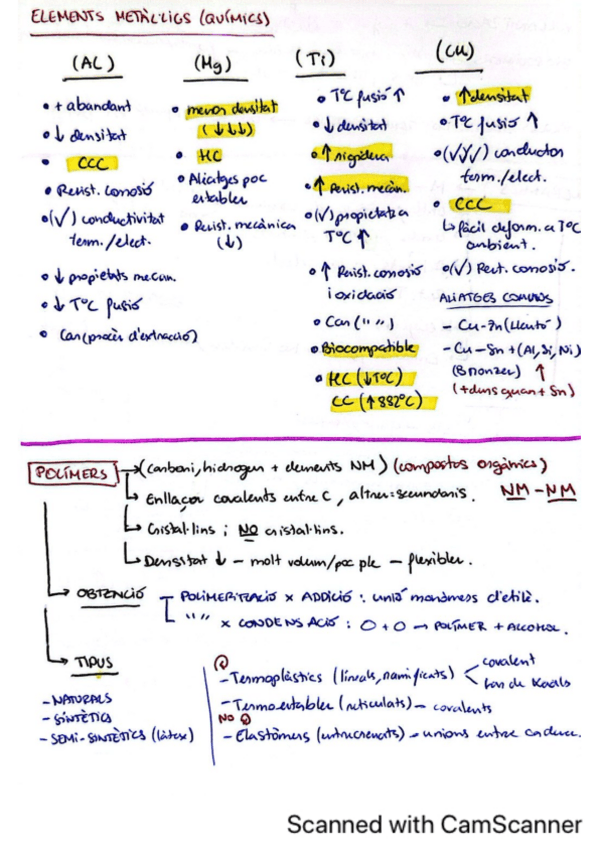 ELEMENTS METÀL·LICS (QUÍMICS)
(AL)
• + abundant
• ↓ densitat
• CCC
• Resist. corrosió
• (√) conductivitat
term./elect.
• ↓ propietats mecàn.
• ↓ TºC fusió
• Car (procés d'extracció)
(Mg)
• menor densitat
(↓↓↓)
• HC
• Aliatges poc
estables
• Resist. mecànica
(↓)
(Ti)
• TºC fusió ↑
• ↓ densitat
• ↑ rigidesa
• ↑ Resist. mecàn.
• (√) propietats a
TºC ↑
• ↑ Resist. corrosió
i oxidació
• Car (" ")
• Biocompatible
• HC (↓TºC)
CC (↑882ºC)
(Cu)
• ↑ densitat
• TºC fusió ↑
• (√√√) conductor
term./elect.
• CCC
↳ fàcil deform. a TºC
ambient.
• (√) Resist. corrosió.
ALIATGES COMUNS
- Cu-Zn (Llautó)
- Cu-Sn + (Al, Si, Ni)
(Bronzes) ↑
(+ durs quan + Sn)
POLÍMERS → (carboni, hidrogen + elements NM) (compostos orgànics)
↳ Enllaços covalents entre C, altres = secundaris. NM - NM
↳ Cristal·lins i NO cristal·lins.
↳ Densitat ↓ - molt volum/poc pes - flexibles.
→ OBTENCIÓ
POLIMERITZACIÓ x ADDICIÓ: unió monòmers d'etilè.
" " x CONDENSACIÓ: O + O → POLÍMER + ALCOHOL.
→ TIPUS
- NATURALS
- SINTÈTICS
- SEMI-SINTÈTICS (làtex)
- Termoplàstics (lineals, ramificats) < covalent
Van der Waals
- Termoestables (reticulats) - covalents
NO
- Elastòmers (entrecreuats) - unions entre cadenes.
Scanned with CamScanner